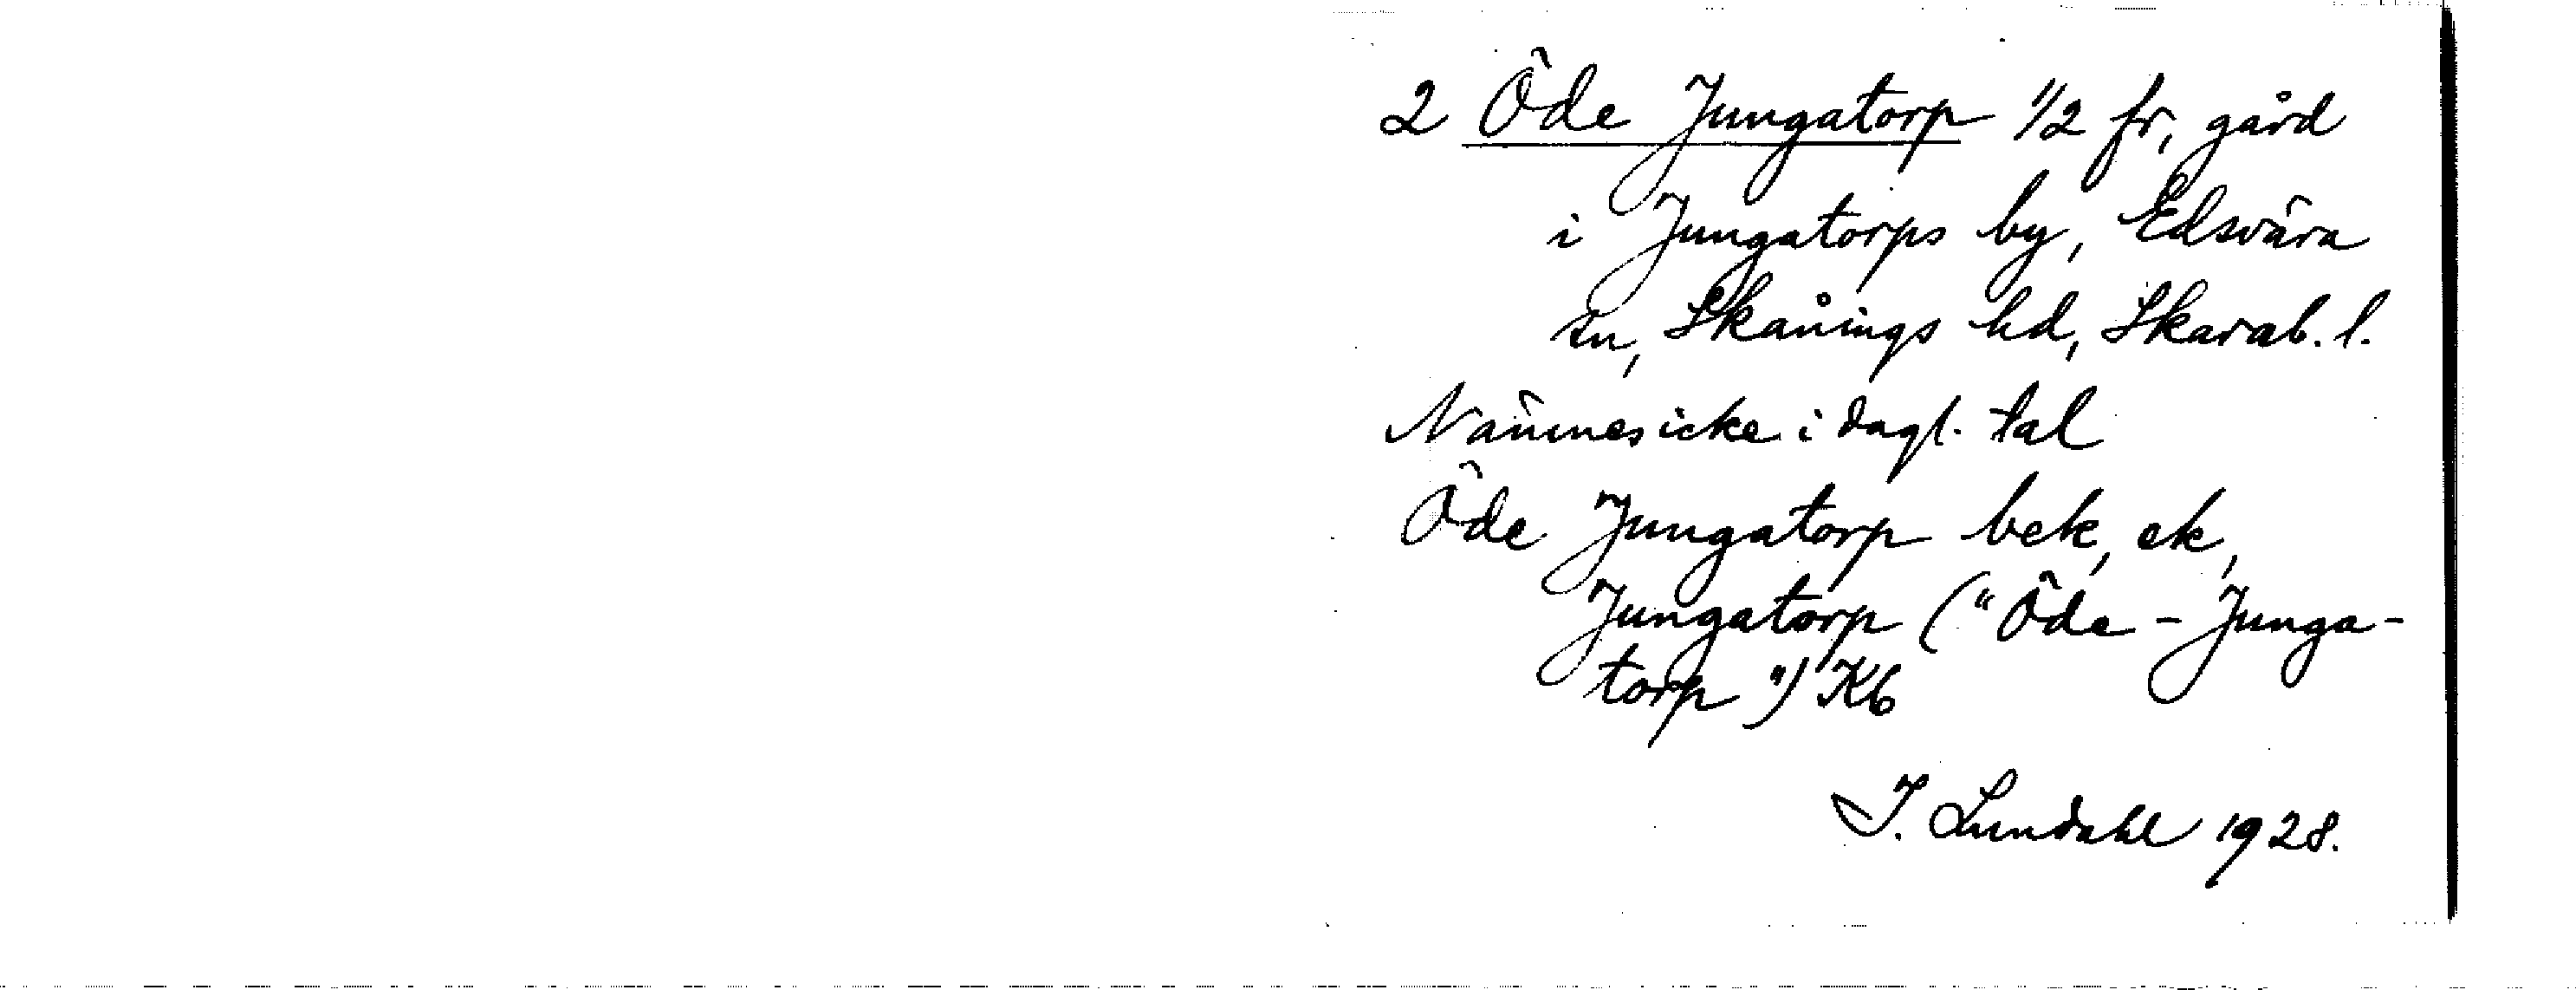 2 Öde Jungatorp 1/2 fr, gård
i Jungatorps by, Edsvära
sn, Skånings hd, Skarab. l.
Nämnes icke i dagl. tal
Öde Jungatorp bek, ek,
Jungatorp ("Öde-Junga-
torp") Kb
I. Lundahl 1928.